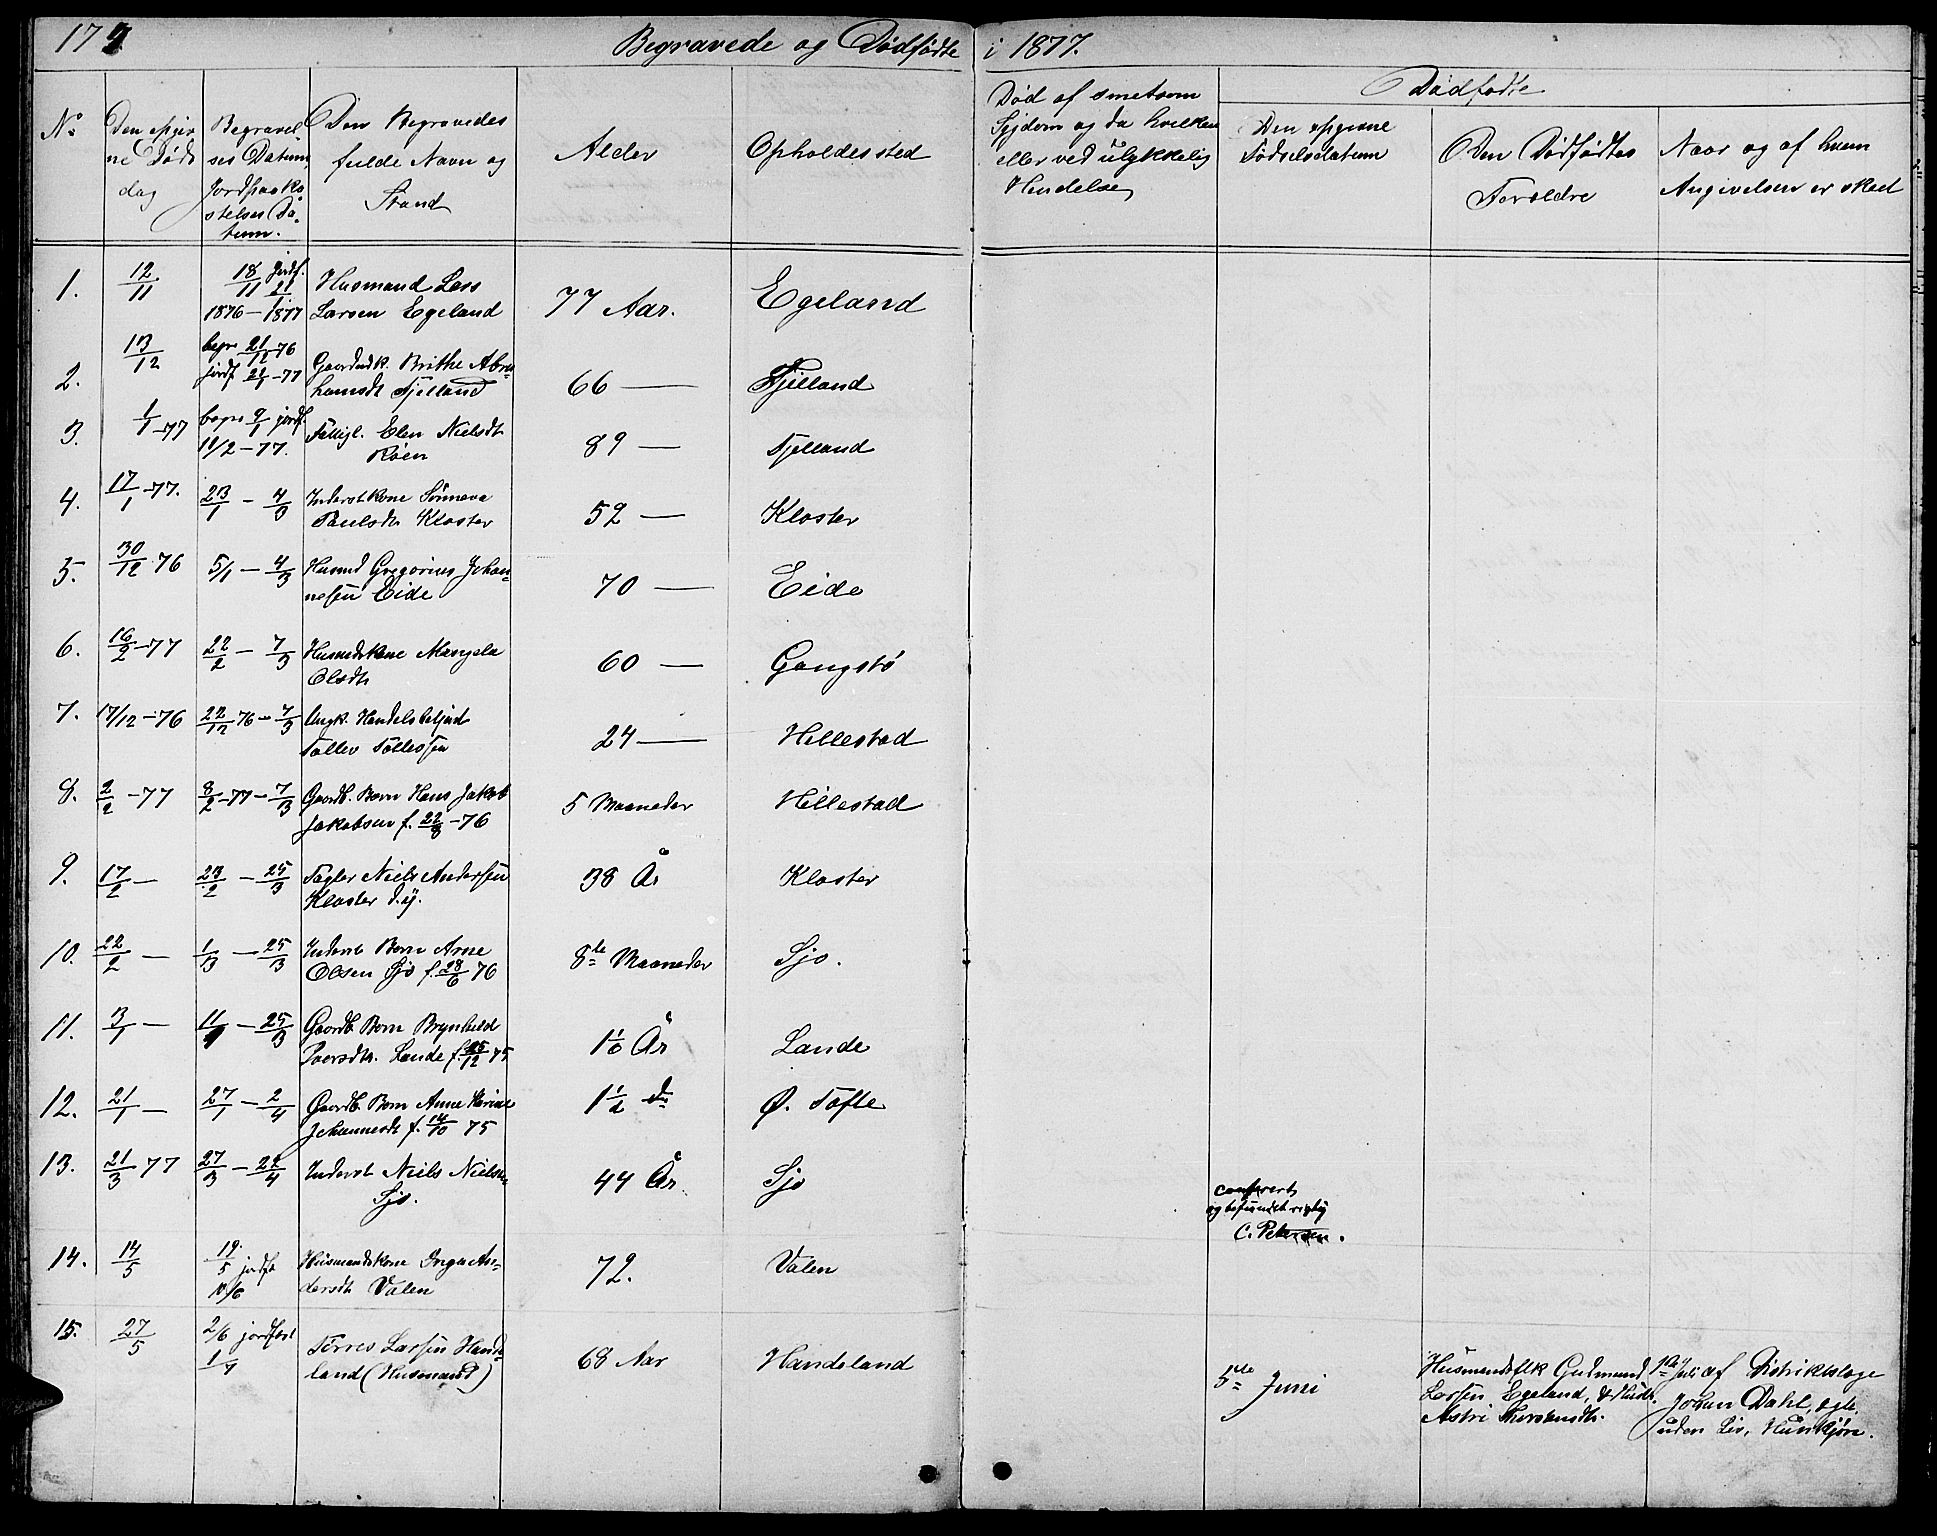 174
Begravede og Dødfødte i 1877.
No
Den opgiv
ne Døds
dag
Begravel
ses Datum
Jordpaaka
stelses Da
tum.
Den Begravedes
fulde Navn og
Stand
Alder
Opholdssted
Død af smetsom
Sygdom og da hvilken
eller ved ulykkelig
Hendelse
Dødfødte
Den opgivne
Fødselsdatum
Den Dødfødtes
Foreldre
Naar og af hvem
Angivelsen er skeet
1. 12/11 18/11 jordf. 21/1 1876-1877 Husmand Lars
Larsen Egeland 77 Aar. Egeland
2. 13/12 begr 21/12-76
jordf 21/1-77 Gaardmdk. Brithe Abra-
hamsdt Fjelland 66 — Fjelland
3. 1/1-77 begr 9/1 jordf.
11/2-77. Fattigl. Elen Nielsdt
Røen 89 — Fjelland
4. 17/1-77. 23/1 - 4/3 Inderstkone Sønneva
Paulsdt Kloster 52 — Kloster
5. 30/12 76 5/1 - 4/3 Husmd Gregorius Johan-
nesen Eide 70 — Eide
6. 16/2-77 22/2 - 7/3 Husmdskone Mangela
Olsdt 60 — Gangstø
7. 17/12-76 22/12 76 - 7/3 Ungk. Handelsbetjent
Tollev Tollefsen 24 — Hellestad
8. 2/2-77 8/2-77 - 7/3 Gaardb. Barn Hans Jakob
Jakobsen f. 22/8-76 5 Maaneder Hillestad
9. 17/2 — 23/2 - 25/3 Niels Andersen
Kloster d.y. 38 År Kloster
10. 22/2 — 1/3 - 25/3 Inderst Barn Arne
Olsen Sjo f. 28/6 76 8de Maaneder Sjo.
11. 3/1 — 11/1 - 25/3 Gaardb Barn Brynhild
Iversdtr. Lande f. 25/12 75 År Lande
12. 21/1 — 27/1 - 2/4 Gaardb Barn Anne Karine
Johannesdt f. 14/10 75 1½ do Ø. Tofte
13. 21/3 77 27/3 - 22/4 Inderst Niels Nielsen
Sjo. 44 År Sjo
confereret
og befundet rigtig
C. Petersen.
14. 14/5 19/5 jordf
10/6 Husmandskone Inga An-
dersdt Valen 72. Valen
15. 27/5 2/6 jordfæst
1/7 Tørres Larsen Hande-
land (Husmand) 68 Aar Handeland
5te Juni
Husmandsflk Gudmund
Larsen Egeland, & Hust.
Astri
1ste Juli af Distriktslæge
Johan Dahl, egte.
uden Liv, Hunkjøn.